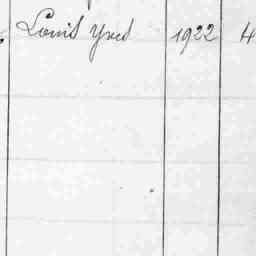 Louis Yves 1922 4